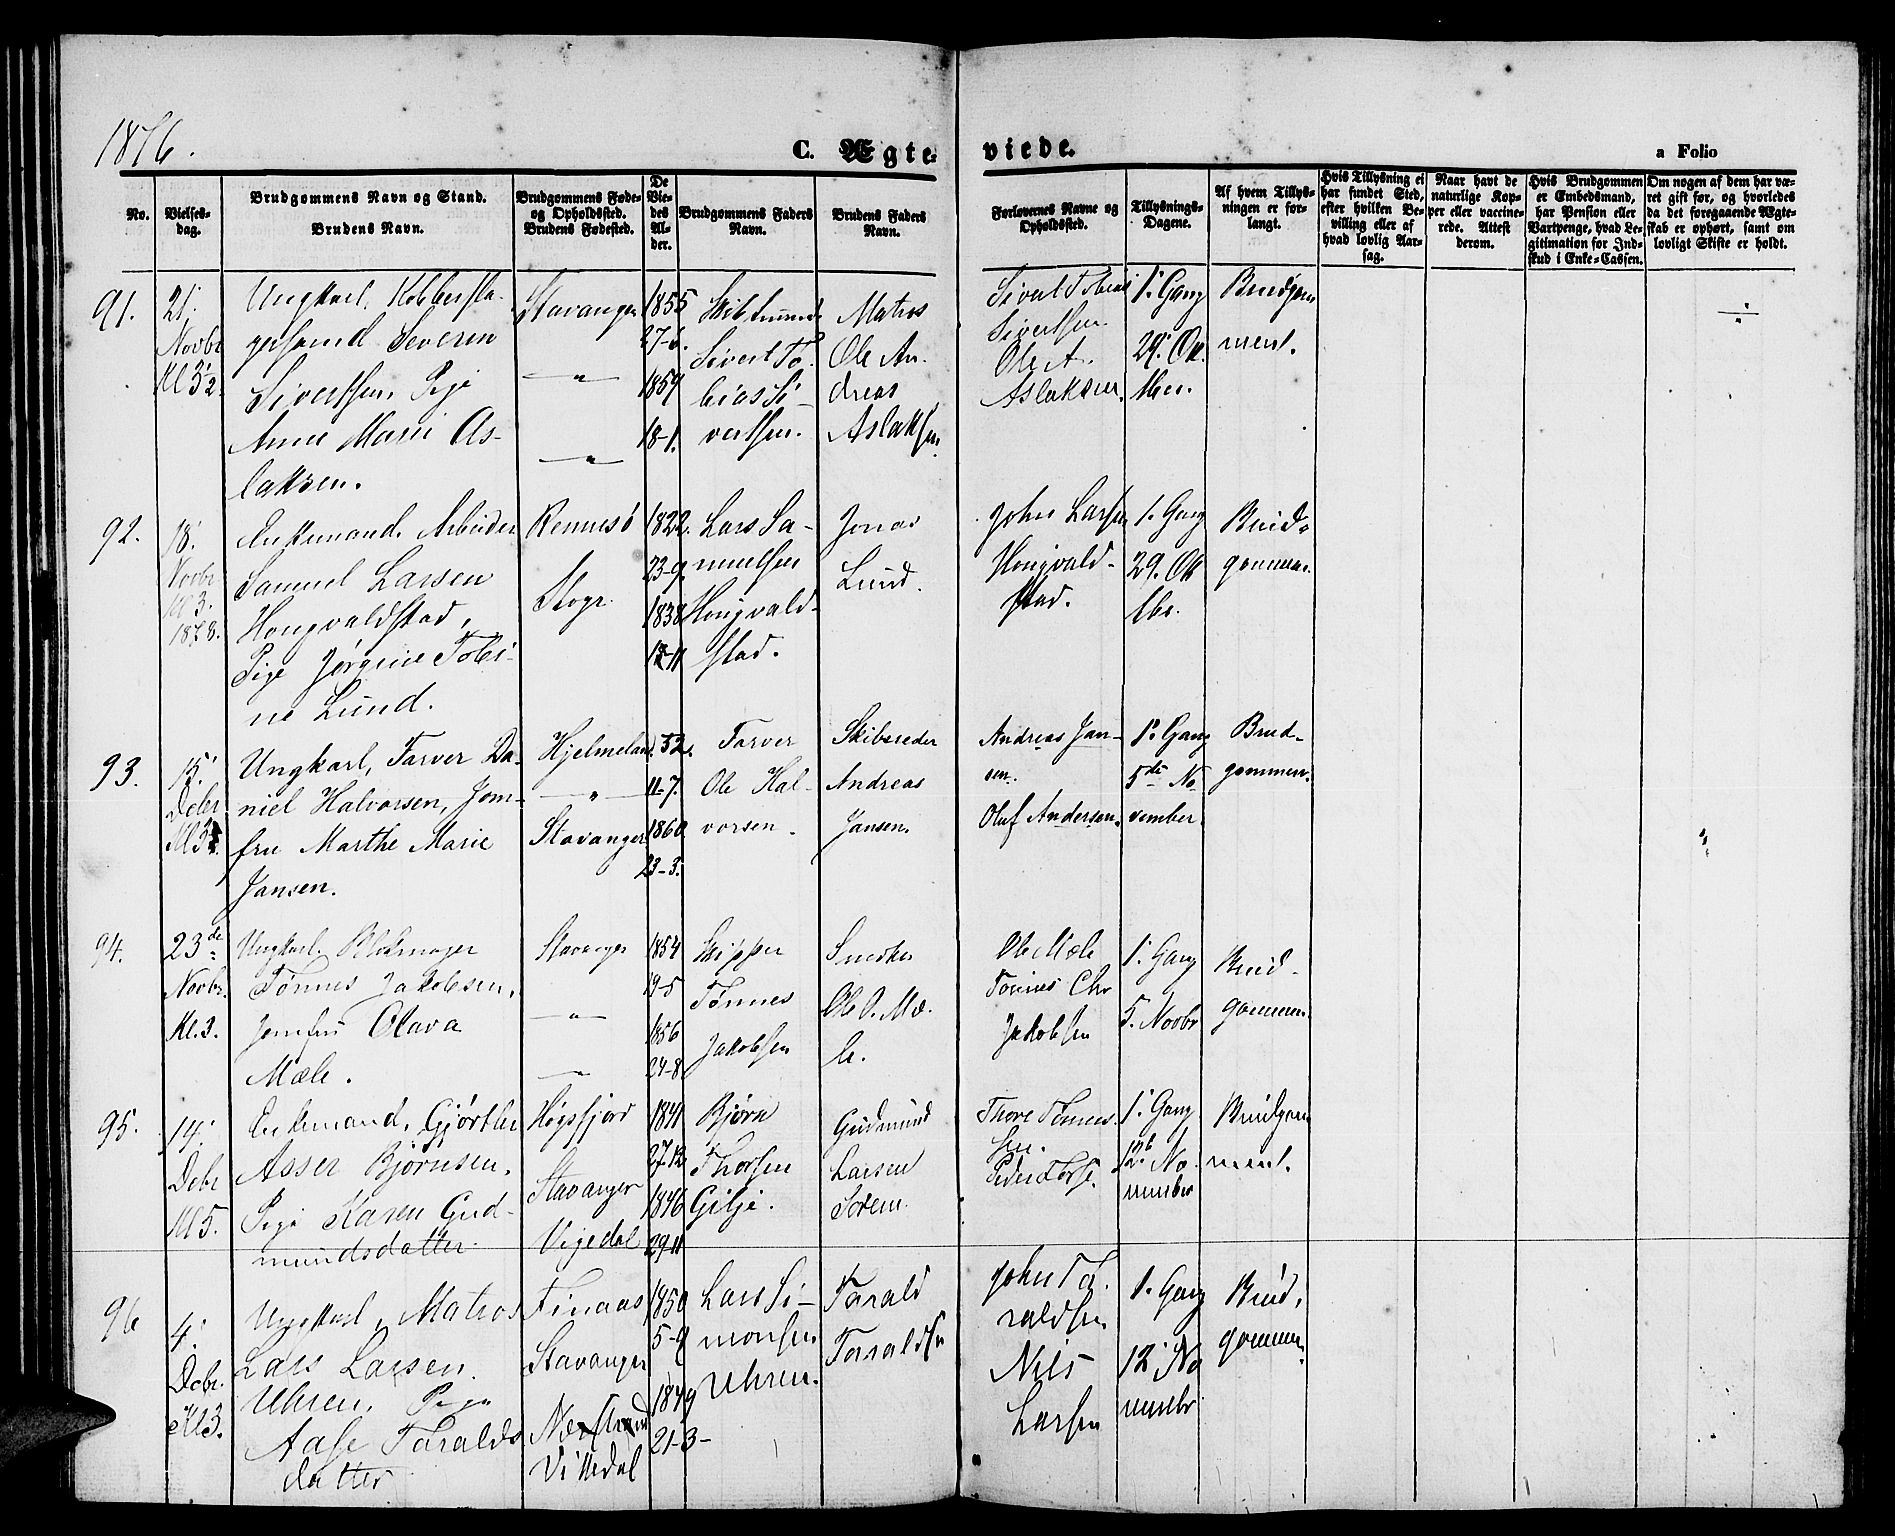 1876.
C. Ægte-
viede.
a Folio
No.
Vielses-
dag.
Brudgommens Navn og Stand.
Brudens Navn.
Brudgommens Føde-
og Opholdssted.
Brudens Fødested.
De
Vie-
des
Al-
der.
Brudgommens Faders
Navn.
Brudens Faders
Navn.
Forlovernes Navne og
Opholdssted.
Tillysnings-
Dagene.
Af hvem Tillys-
ningen er for-
langt.
Hvis Tillysning ei
har fundet Sted,
efter hvilken Be-
villing eller af
hvad lovlig Aar-
sag.
Naar havt de
naturlige Kop-
per eller vaccine-
rede. Attest
derom.
Hvis Brudgommen
er Embedsmand,
har Pension eller
Vartpenge, hvad Le-
gitimation for Ind-
skud i Enke-Cassen.
Om nogen af dem har væ-
ret gift før, og hvorledes
da det foregaaende Ægte-
skab er ophørt, samt om
lovligt Skifte er holdt.
91.
21.
Novbr
Kl 3½
Ungkarl, Kobbersla-
gersvend Severin
Sivertsen, Pige
Anne Marie As-
laksen.
Stavanger
—„—
—„—
1855
27-6.
1854
18-1.
Skibstømmerm.
Sivert To-
bias Si-
vertsen.
Matros
Ole An-
dreas
Aslaksen.
Sivert Tobias
Sivertsen.
Ole A.
Aslaksen.
1. Gang
29. Ok-
tbr.
Brudgom
men.
92.
18.
Novbr
Kl 3.
1878.
Enkemand, Arbeider
Samuel Larsen
Hongvaldstad,
Pige Jørgine Tobi-
ne Lund.
Rennesö
Stvgr.
1822.
23-9.
1838
12-11
Lars Sa-
muelsen
Hongvald-
stad.
Jonas
Lund.
John Larsen
Hongvald-
stad.
1. Gang
29. Ok
tbr.
Brud-
gommen.
93.
15.
Dcbr
Kl 3½
Ungkarl, Farver Da-
niel Halvorsen, Jom-
fru Marthe Marie
Jansen.
Hjelmeland
—„—
Stavanger
52.
11-7.
1860
23-3.
Farver
Ole Hal-
vorsen.
Skibsreder
Andreas
Jansen.
Andreas Jan-
sen.
Oluf Andersen.
1. Gang
5te No
vember
Brud-
gommen.
94.
23de
Novbr.
Kl. 3.
Ungkarl. Blokmager
Tønnes Jakobsen,
Jomfru Olava
Mæle.
Stavanger
—„—
1854
19-5
1856
24-8
Skipper
Tønnes
Jakobsen
Snedker
Ole O. Mæ-
le.
Ole Mæle
Tønnes Chr
Jakobsen
1. Gang
5. Novbr
Brud-
gommen.
95.
14.
Dcbr
Kl 5.
Enkemand, Gjørtler
Asser Bjørnsen,
Pige Karen Gud-
mundsdatter.
Høgsfjord
Stavanger
Vigedal
1841
27-12
1846
29-11
Bjørn
Thorsen
Gilje.
Gudmund
Larsen
Thore Tønnes
sen.
1. Gang
12. No
vember
Brudgom
men.
96
4.
Dcbr.
Kl 3.
Ungkarl, Matros
Lars Larsen
Uhren, Pige
Aase Taralds
datter
Finaas
Stavanger
Nærstrand
Vikedal
1850
5-9
1849
21-3-
Lars Si-
monsen
Uhren.
Tarald
Taraldsen
John Ta-
raldsen
Nils
Larsen
1. Gang
12. No
vembr
Brud-
gommen.